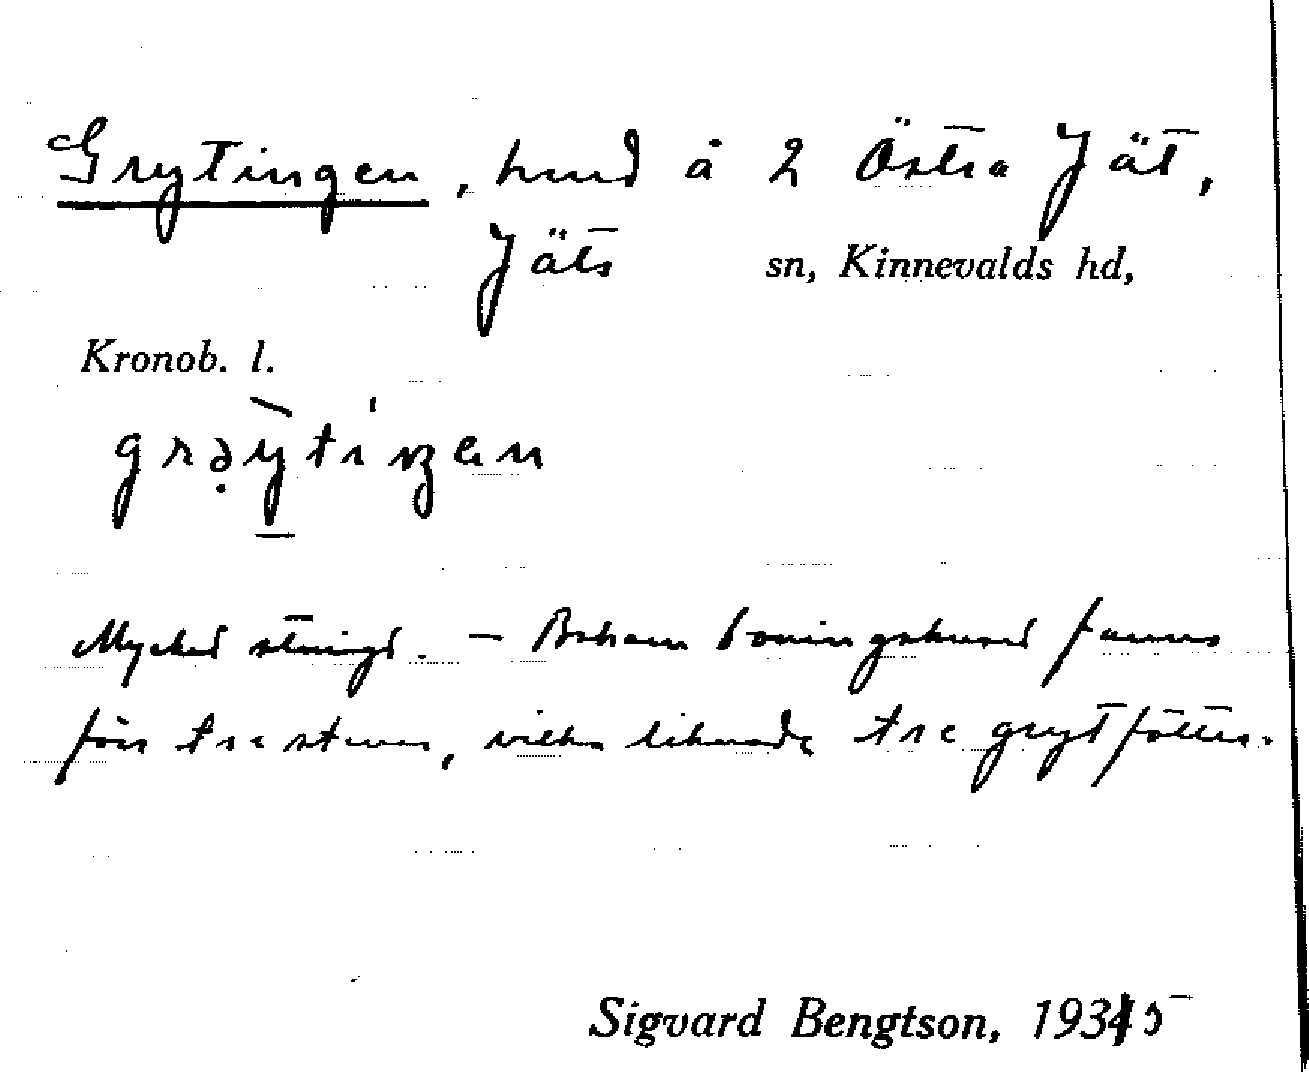 Grytingen, lund å 2 Östra Jät,
Jäts sn, Kinnevalds hd,
Kronob. l.
grə̣ỳtiŋen
Mycket stenigt. — Bakom boningshuset funnos
förr tre stenar, vilka liknade tre grytfötter.
Sigvard Bengtson, 1935